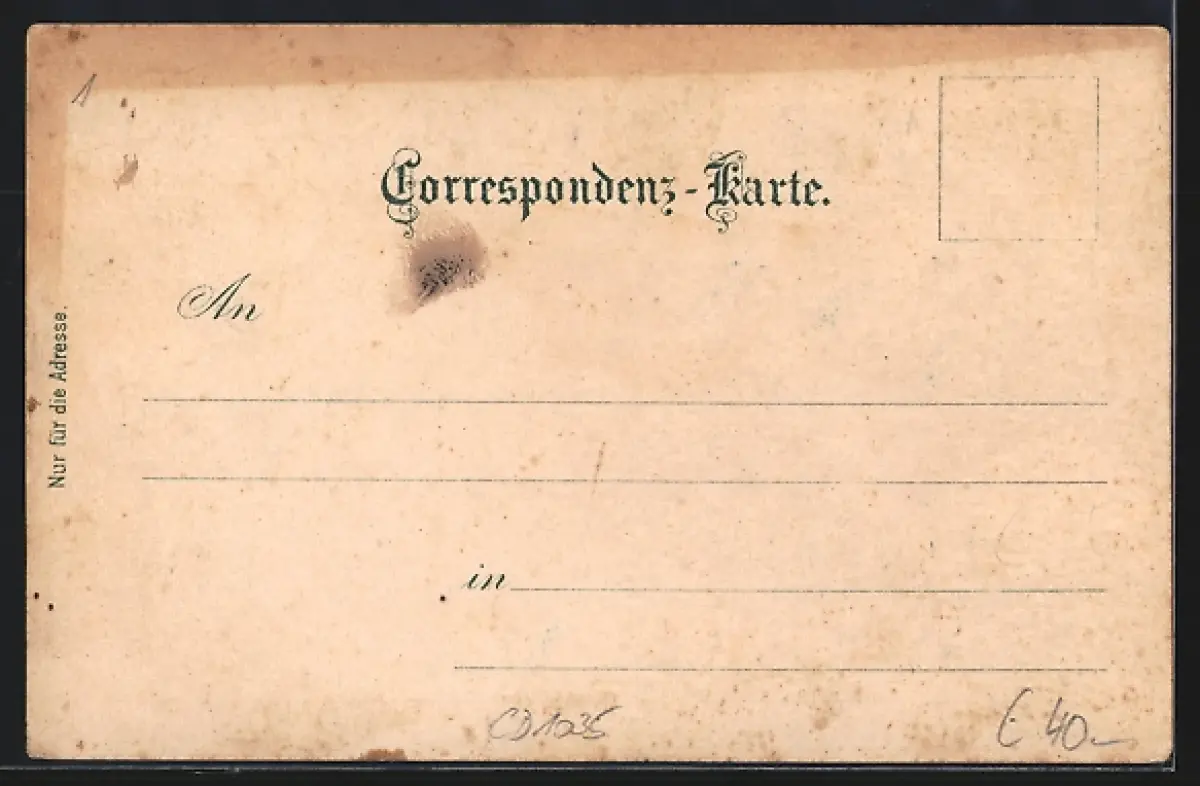 1
Correspondenz-Karte.
An
Nur für die Adresse.
in
€ 40.-